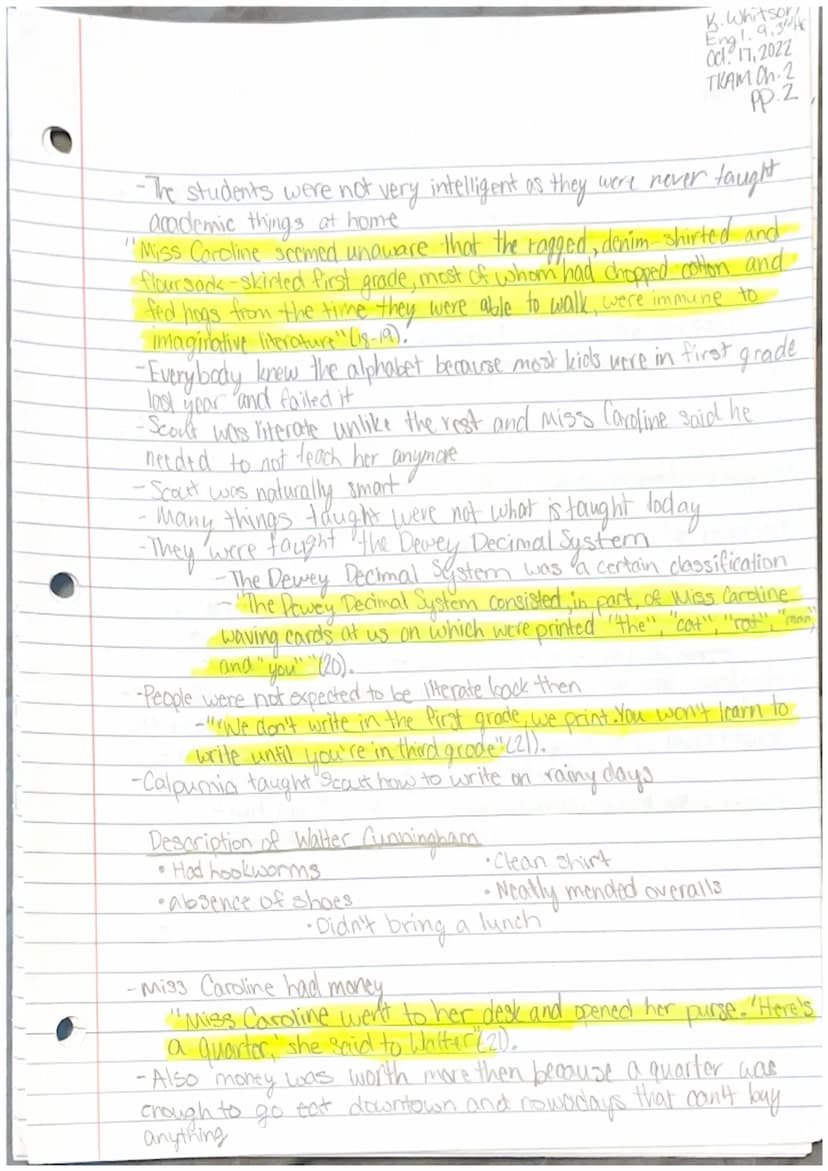 K. Whitson
Engl. 9, 3rd Hr
Oct. 17, 2022
TKAM Ch. 2
pp. 2
- The students were not very intelligent as they were never taught
academic things at home
"Miss Caroline seemed unaware that the ragged, denim-shirted and
floursack-skirted first grade, most of whom had chopped cotton and
fed hogs from the time they were able to walk, were immune to
imaginative literature" (18-19).
- Everybody knew the alphabet because most kids were in first grade
last year and failed it
- Scout was literate unlike the rest and Miss Caroline said he
needed to not teach her anymore
- Scout was naturally smart
- Many things taught were not what is taught today
- They were taught the Dewey Decimal System
- The Dewey Decimal System was a certain classification
- "The Dewey Decimal System consisted, in part, of Miss Caroline
waving cards at us on which were printed "the", "cat", "rat", "man",
and "you" " (20).
- People were not expected to be literate back then
- ""We don't write in the first grade, we print. You won't learn to
write until you're in third grade" (21).
- Calpurnia taught Scout how to write on rainy days
Description of Walter Cunningham
• Had hookworms • Clean shirt
• absence of shoes • Neatly mended overalls
• Didn't bring a lunch
- Miss Caroline had money
"Miss Caroline went to her desk and opened her purse. 'Here's
a quarter,' she said to Walter" (21).
- Also money was worth more then because a quarter was
enough to go eat downtown and nowadays that can't buy
anything